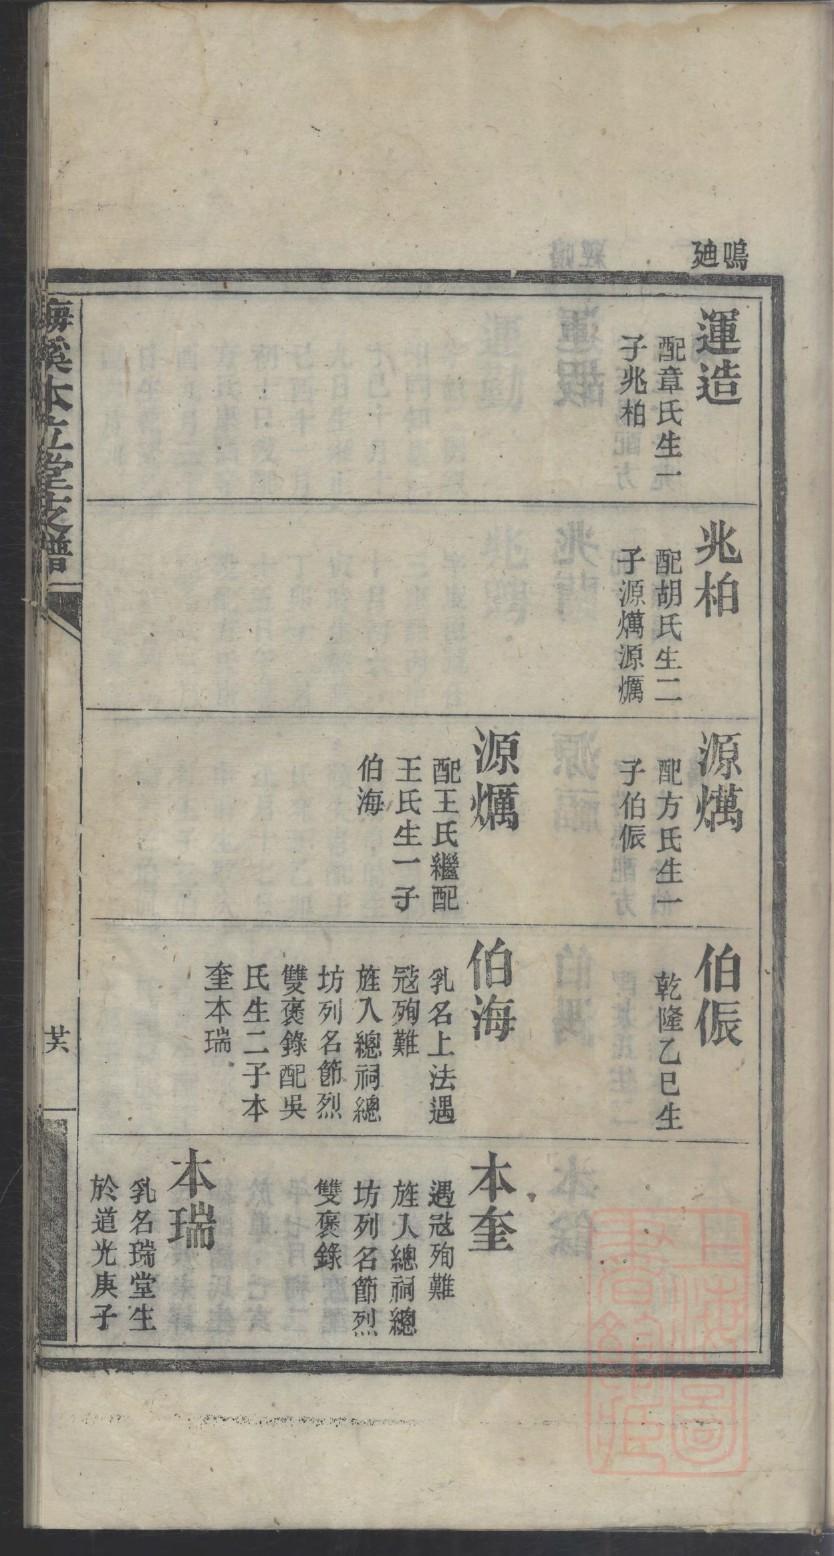 鳴廸
運造
配章氏生一
子兆柏
兆柏
配胡氏生二
子源燤源爄
源燤
配方氏生一
子伯侲
源爄
配王氏繼配
王氏生一子
伯海
伯侲
乾隆乙巳生
伯海
乳名上法遇
寇殉難
旌入總祠總
坊列名節烈
雙褒錄配吳
氏生二子本
奎本瑞
本奎
遇寇殉難
旌入總祠總
坊列名節烈
雙褒錄
本瑞
乳名瑞堂生
於道光庚子
溪本立堂支譜
廿六
上海圖
書館藏